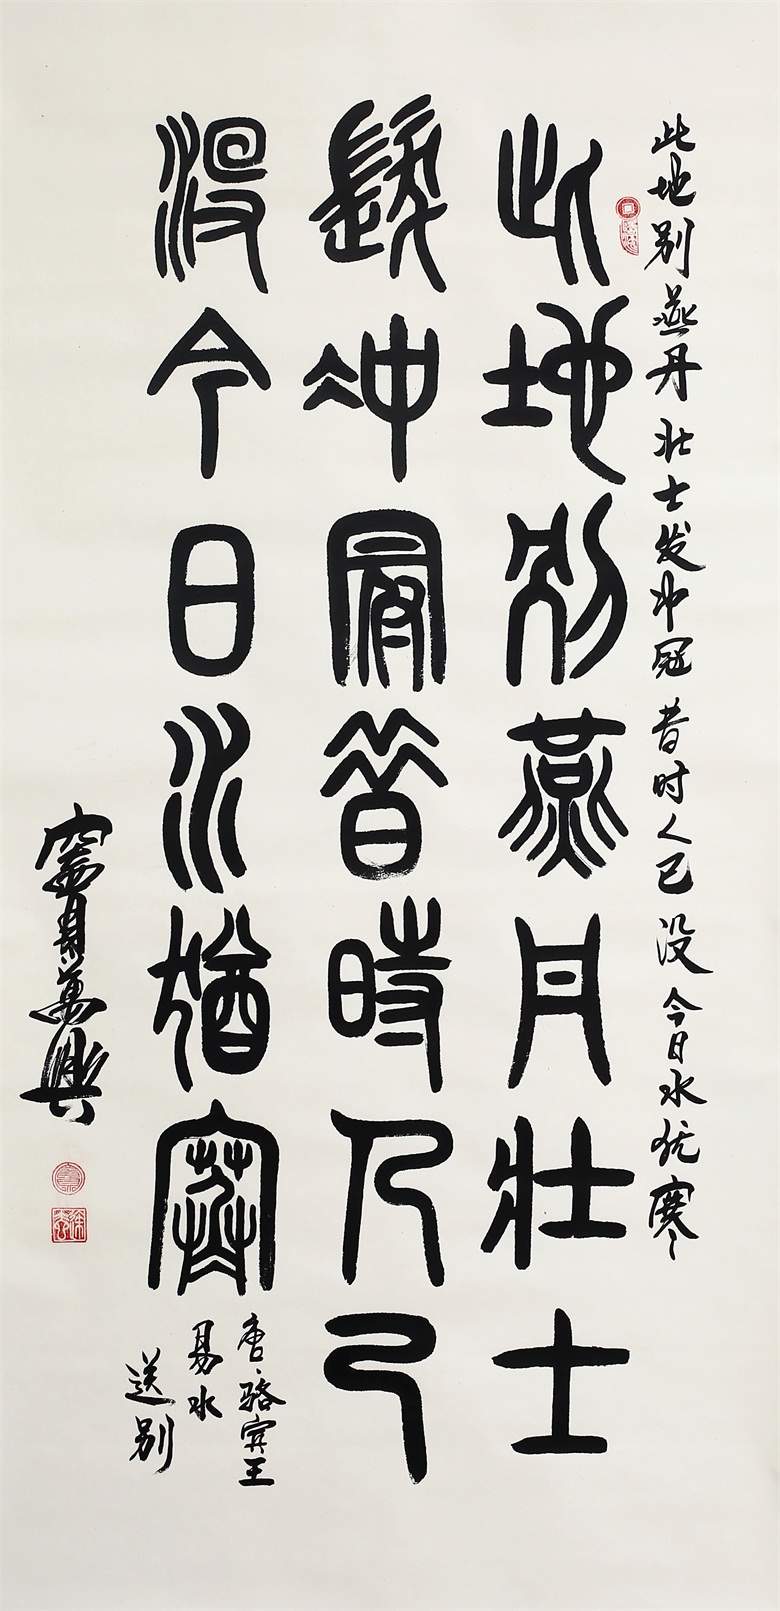 此地别燕丹壮士发冲冠昔时人已没今日水犹寒
此地別燕丹壯士
髮沖冠昔時人已
沒今日水猶寒
唐、骆宾王
易水
送别
萬興